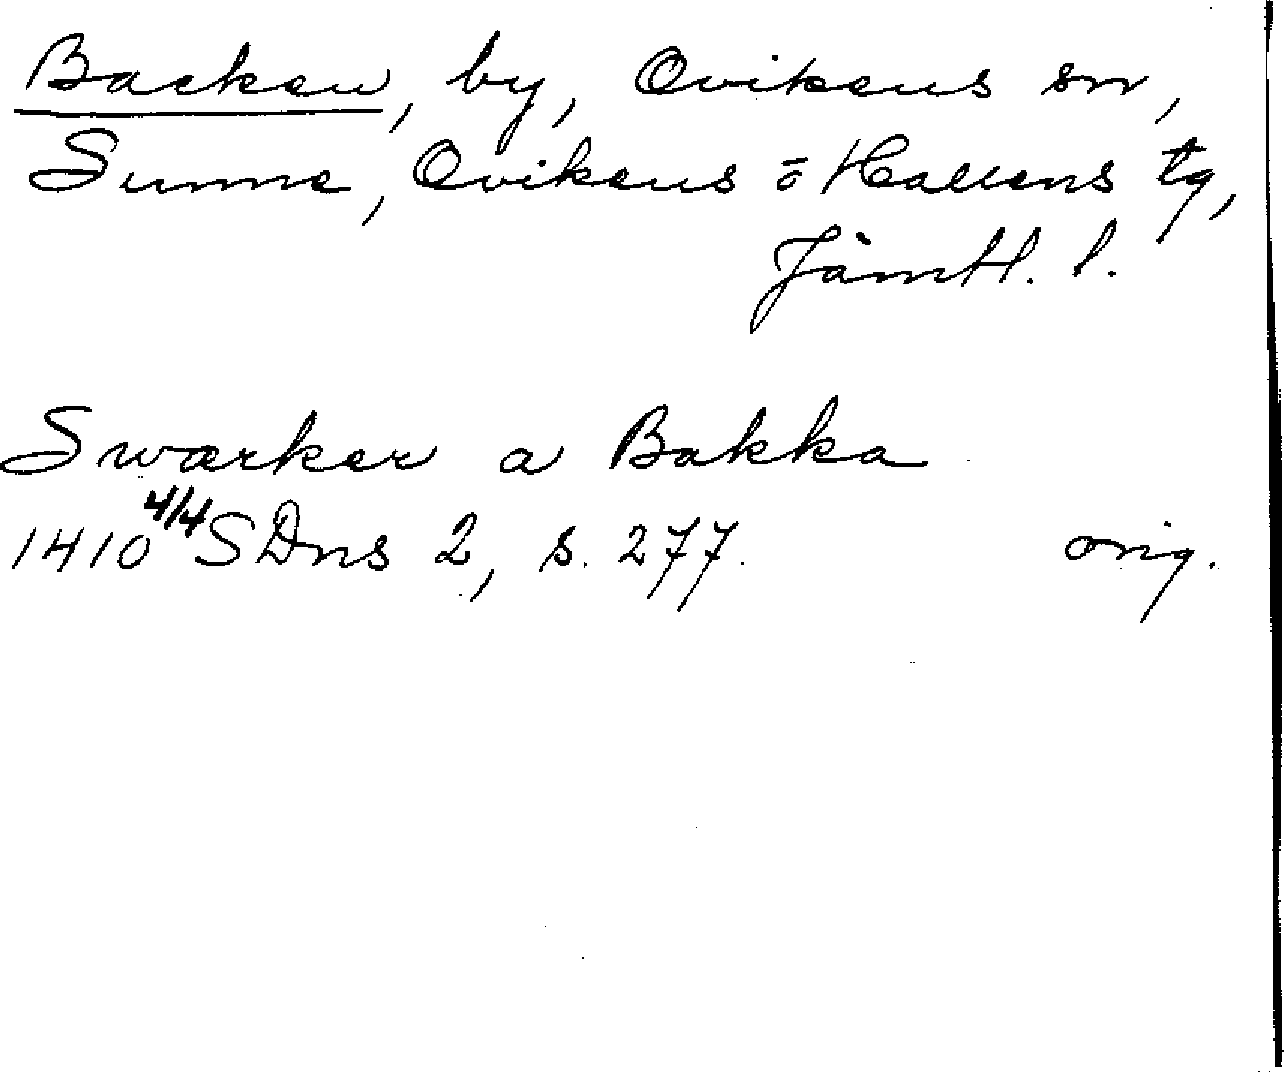 Backen, by, Ovikens sn,
Sunne, Ovikens o Hallens tg,
Jämtl. l.
Swærker a Bakka
1410 4/4 SDns 2, s. 277. orig.